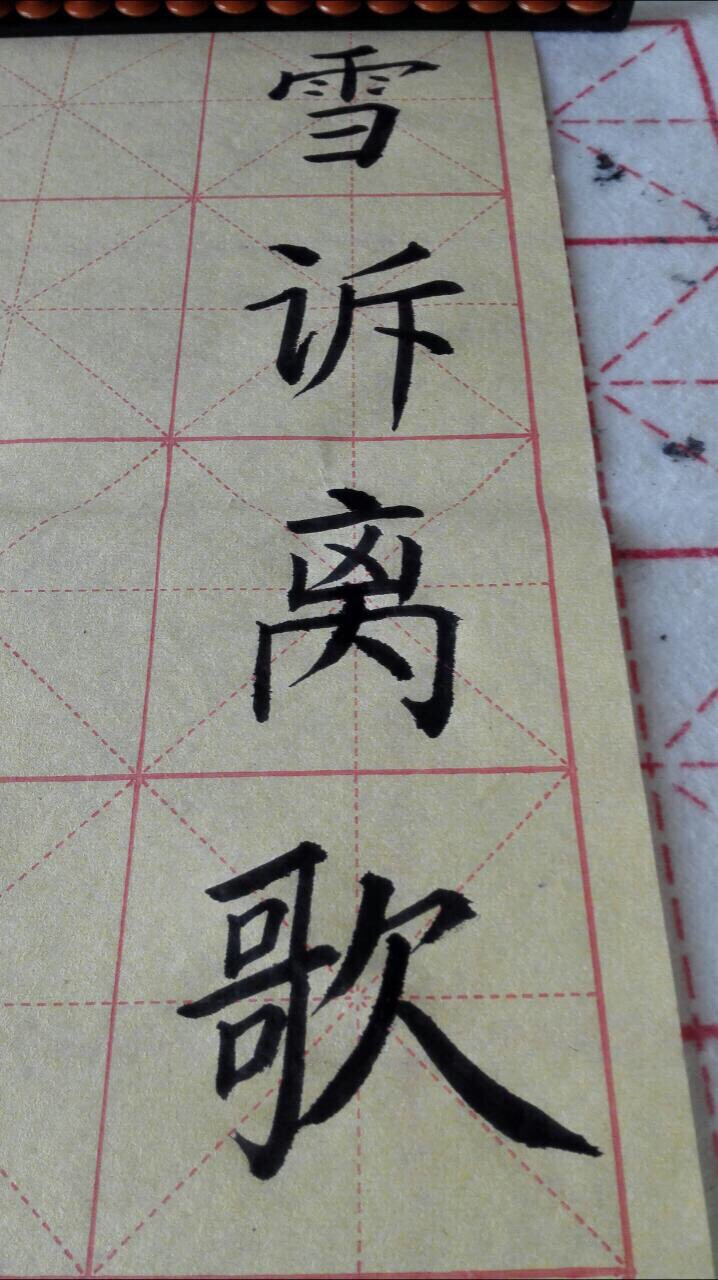 雪诉离歌